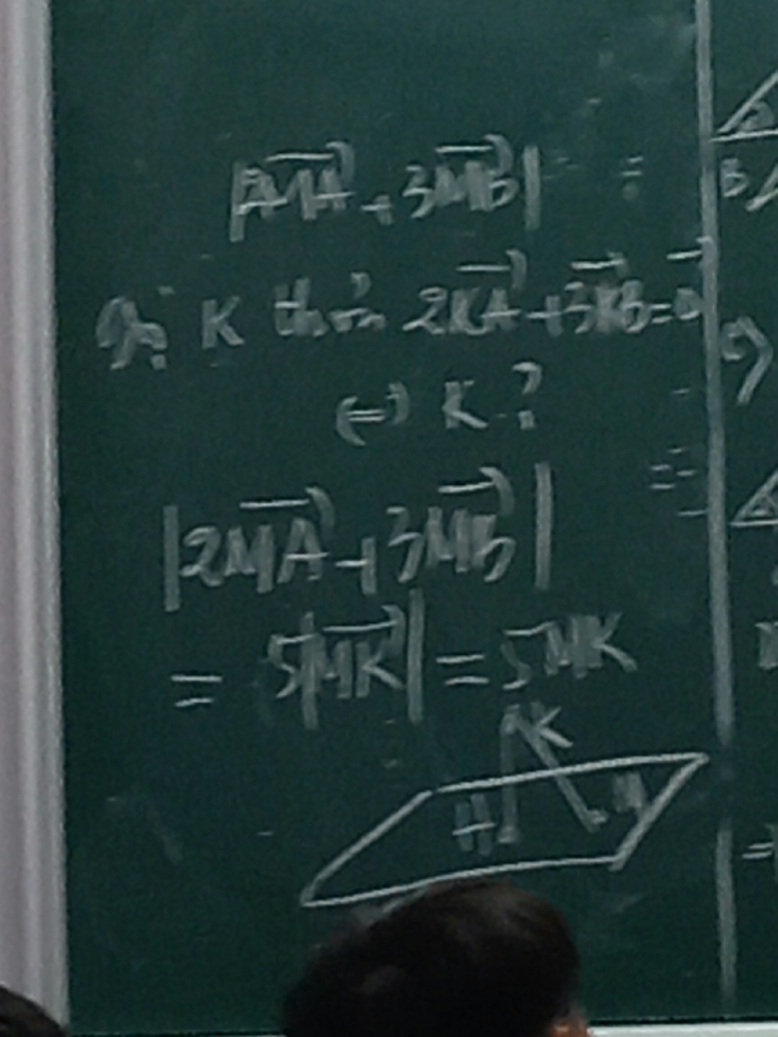 |2MA⃗ + 3MB⃗| =
Gọi K thỏa 2KA⃗ + 3KB⃗ = 0⃗
⇔ K ?
|2MA⃗ + 3MB⃗|
= 5|MK⃗| = 5MK
K
H M
b